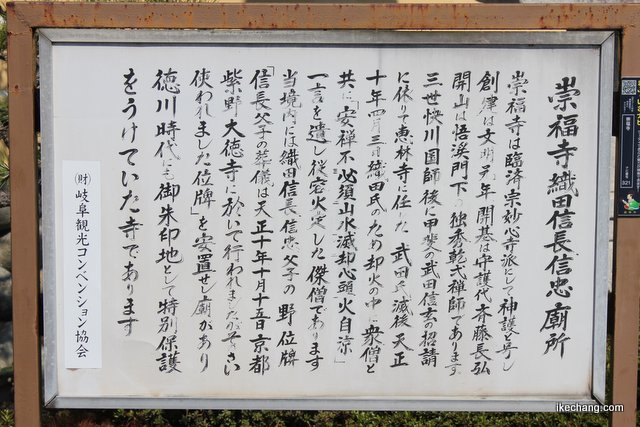 崇福寺織田信長信忠廟所
崇福寺は臨済宗妙心寺派にして神護と号し
創建は文明元年開基は守護代斉藤長弘
開山は悟渓門下の独秀乾才禅師であります
三世快川国師後に甲斐の武田信玄の招請
に依りて恵林寺に住した武田氏滅後天正
十年四月三日織田氏のため却火の中に衆僧と
共に「安禅不必須山水滅却心頭火自涼」
一言を遺し従容火定した傑僧であります
当境内には織田信長信忠父子の野位牌
「信長父子の葬儀は天正十年十月十五日京都
紫野大徳寺に於いて行われましたがそのさい
使われました位牌」を安置せし廟があり
徳川時代にも御朱印地として特別保護
をうけていた寺であります
(財)岐阜観光コンベンション協会
321
ikechang.com